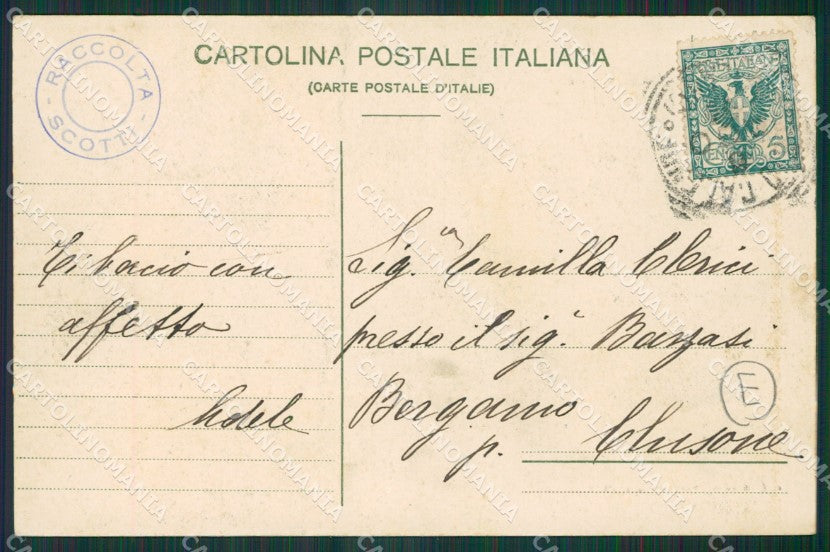 CARTOLINA POSTALE ITALIANA
(CARTE POSTALE D'ITALIE)
RACCOLTA
SCOTTI
POSTE ITALIANE
CENT. 5
Ti bacio con
affetto
Adele
Sig.na Camilla Clerici
presso il sig.r Barzasi
Bergamo
p. Clusone
E
CARTOLINOMANIA